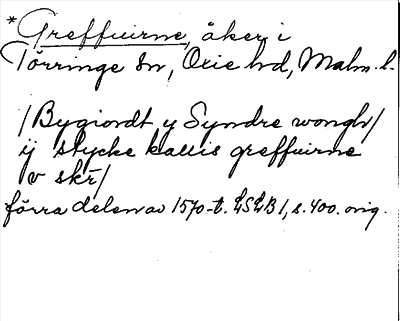 *Greffuirne, åker i
Törringe sn, Oxie hd, Malm. l.
/Bygiordt y Syndre wongh/
ij stycke kallis greffuirne
v skr/
förra delen av 1570-t. LSLB 1, s. 400. orig.